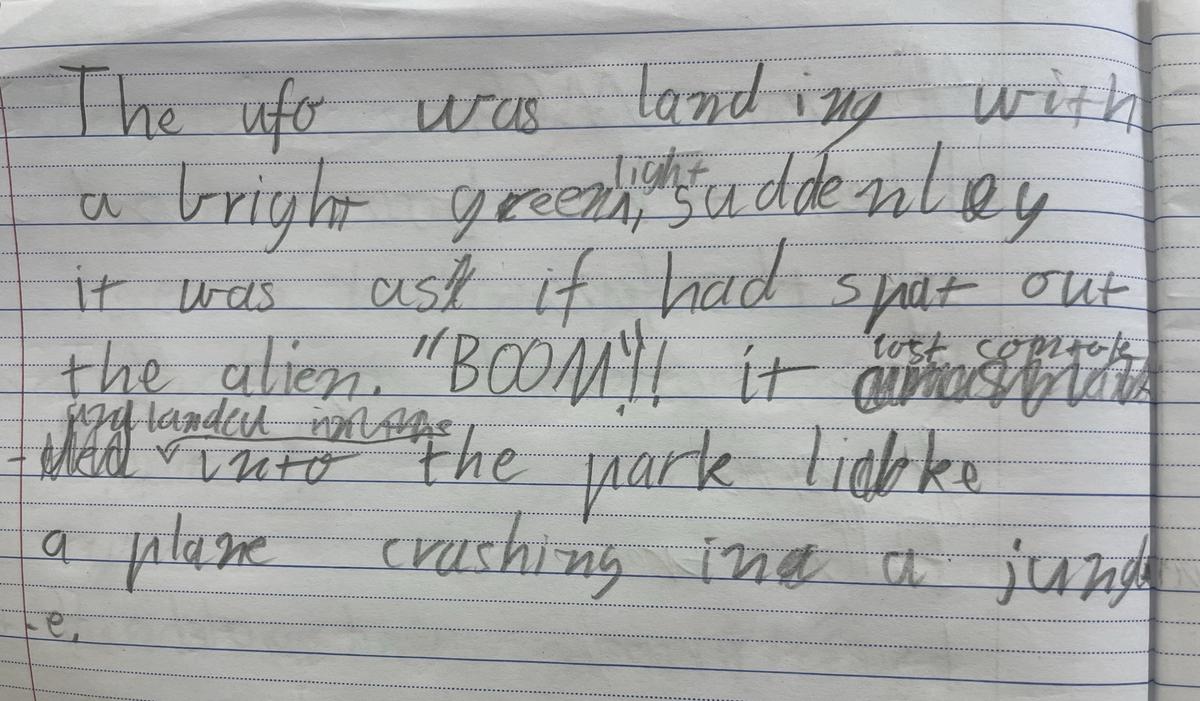 The ufo was landing with
light
a bright green, suddenley
it was as if had spat out
the alien. "BOOM"!! it
lost controle
and landed in the
into the park like
a plane crashing in a jungl
-e.